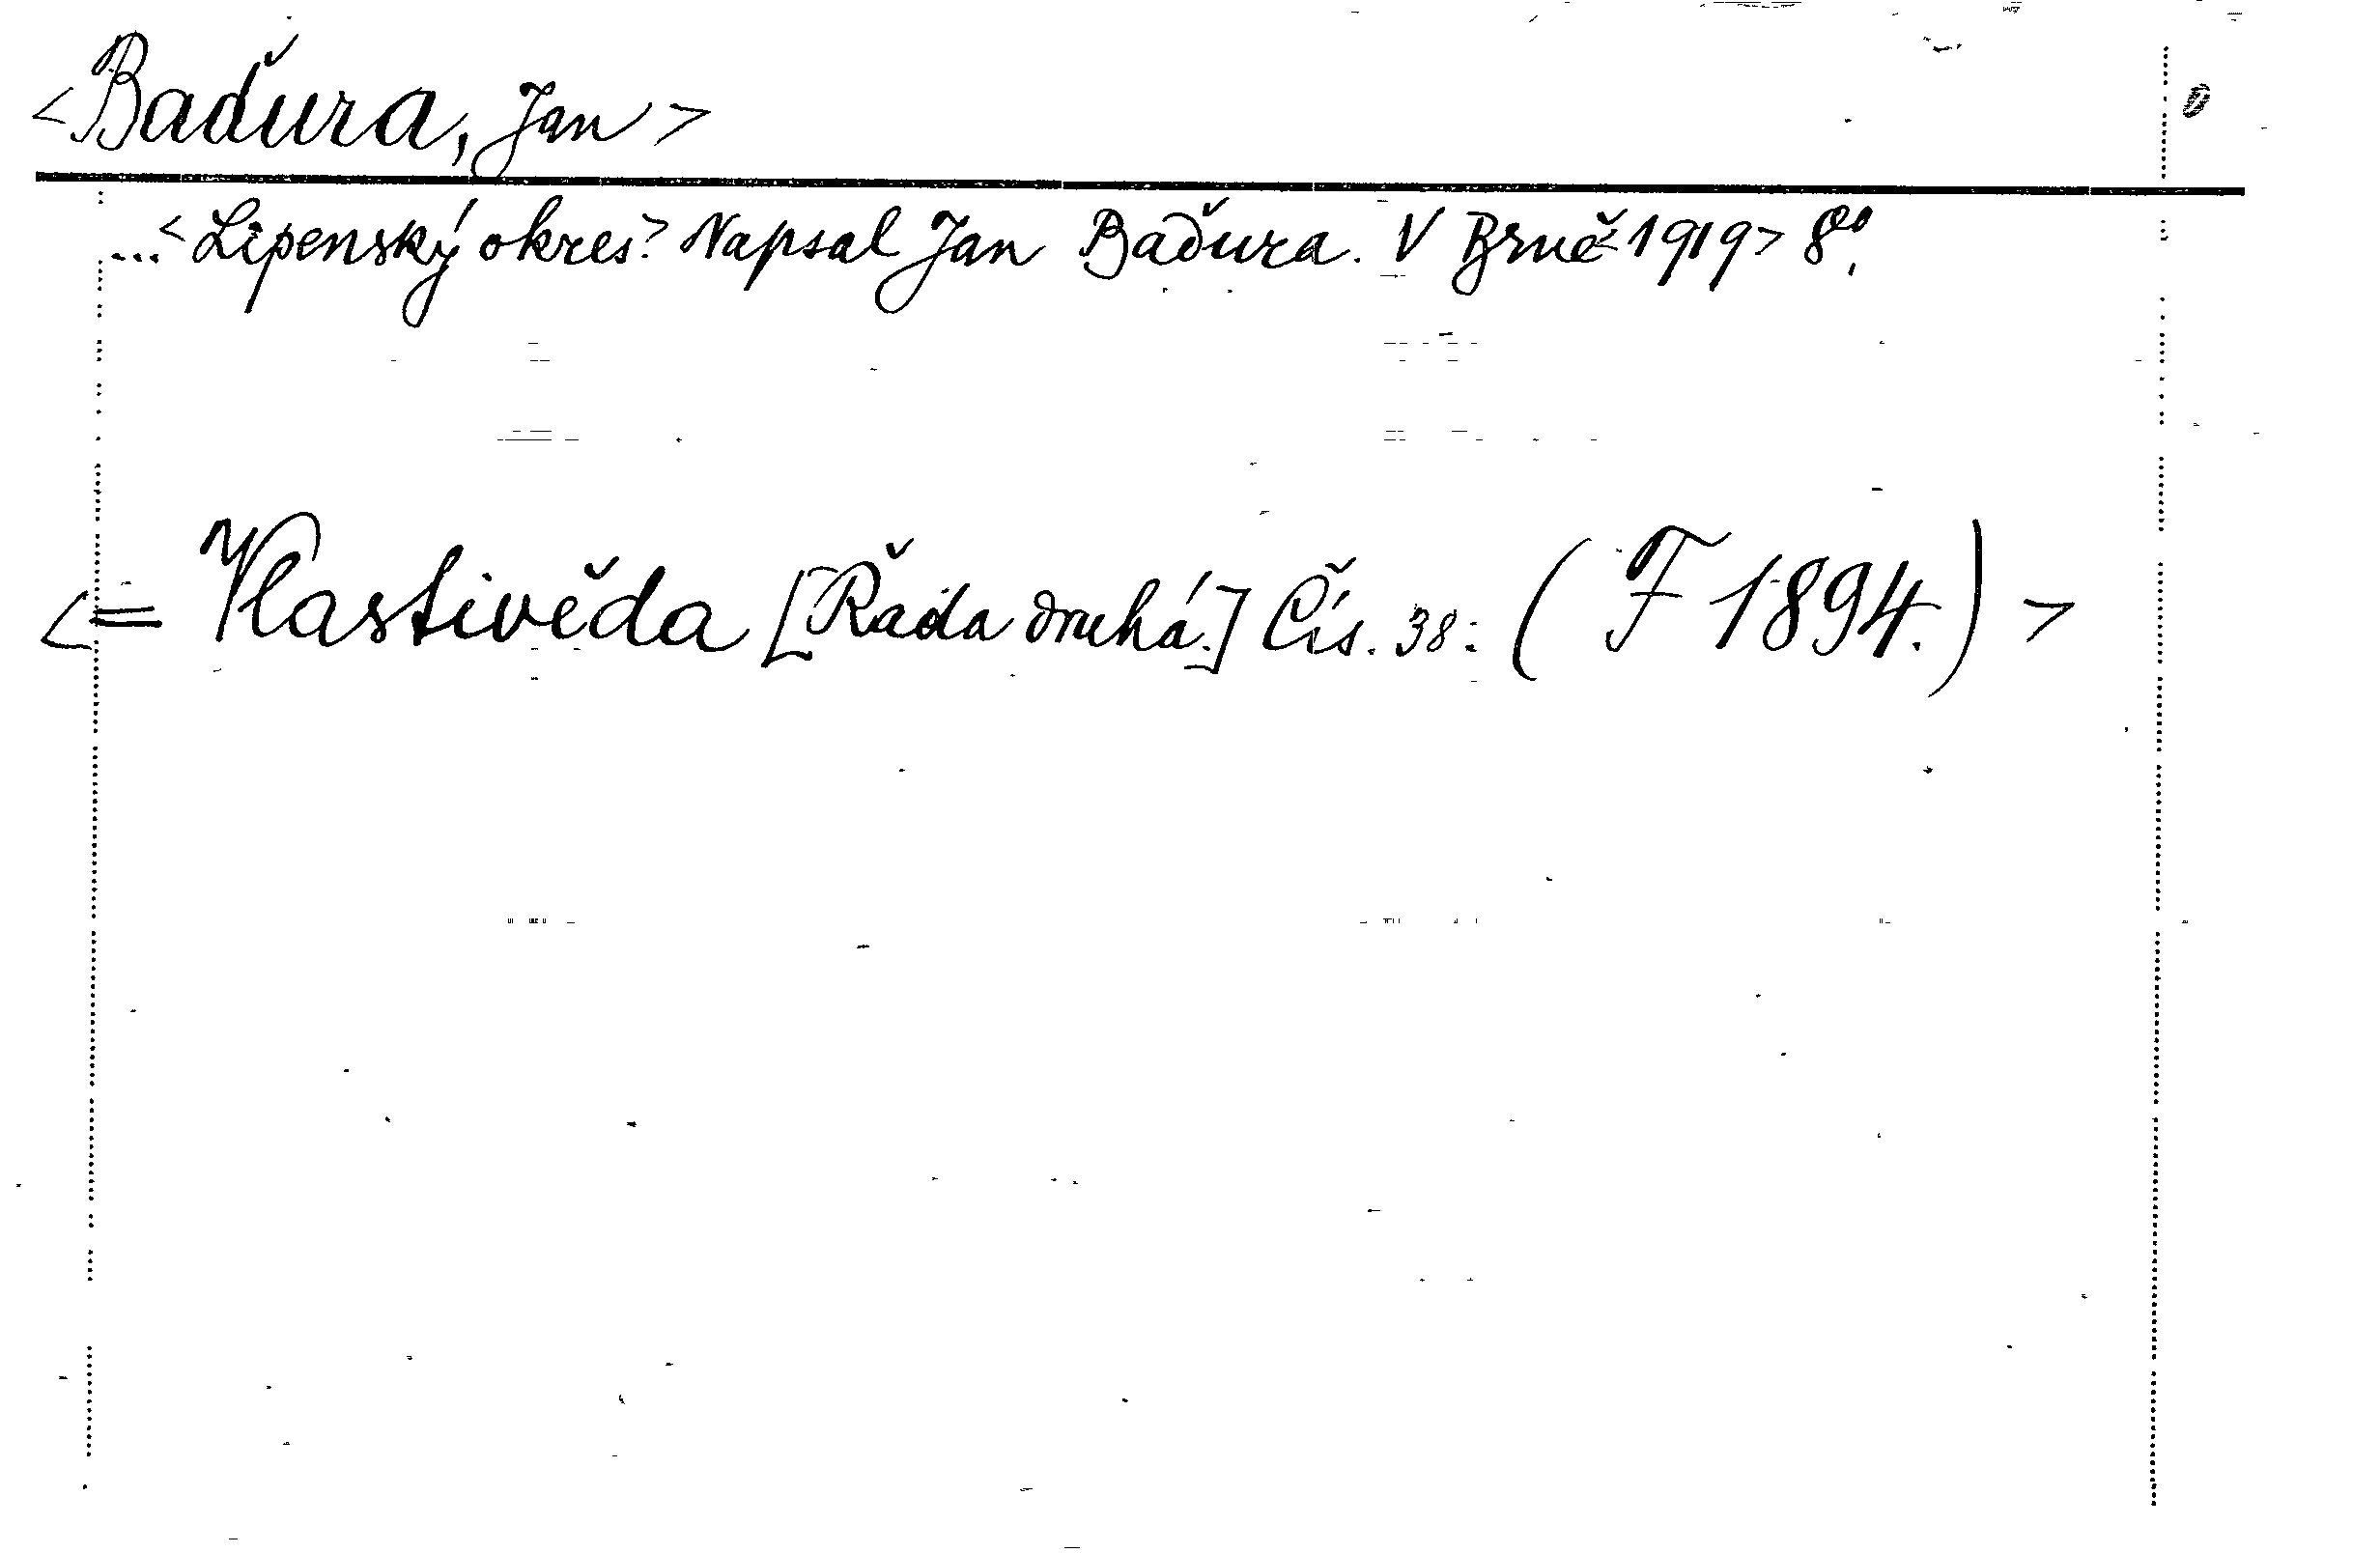 <Baďura, Jan>
...<Lipenský okres> Napsal Jan Baďura. V Brně <1919> 8°.
<= Vlastivěda [Řada druhá.] Čís. 38: (F 1894.)>